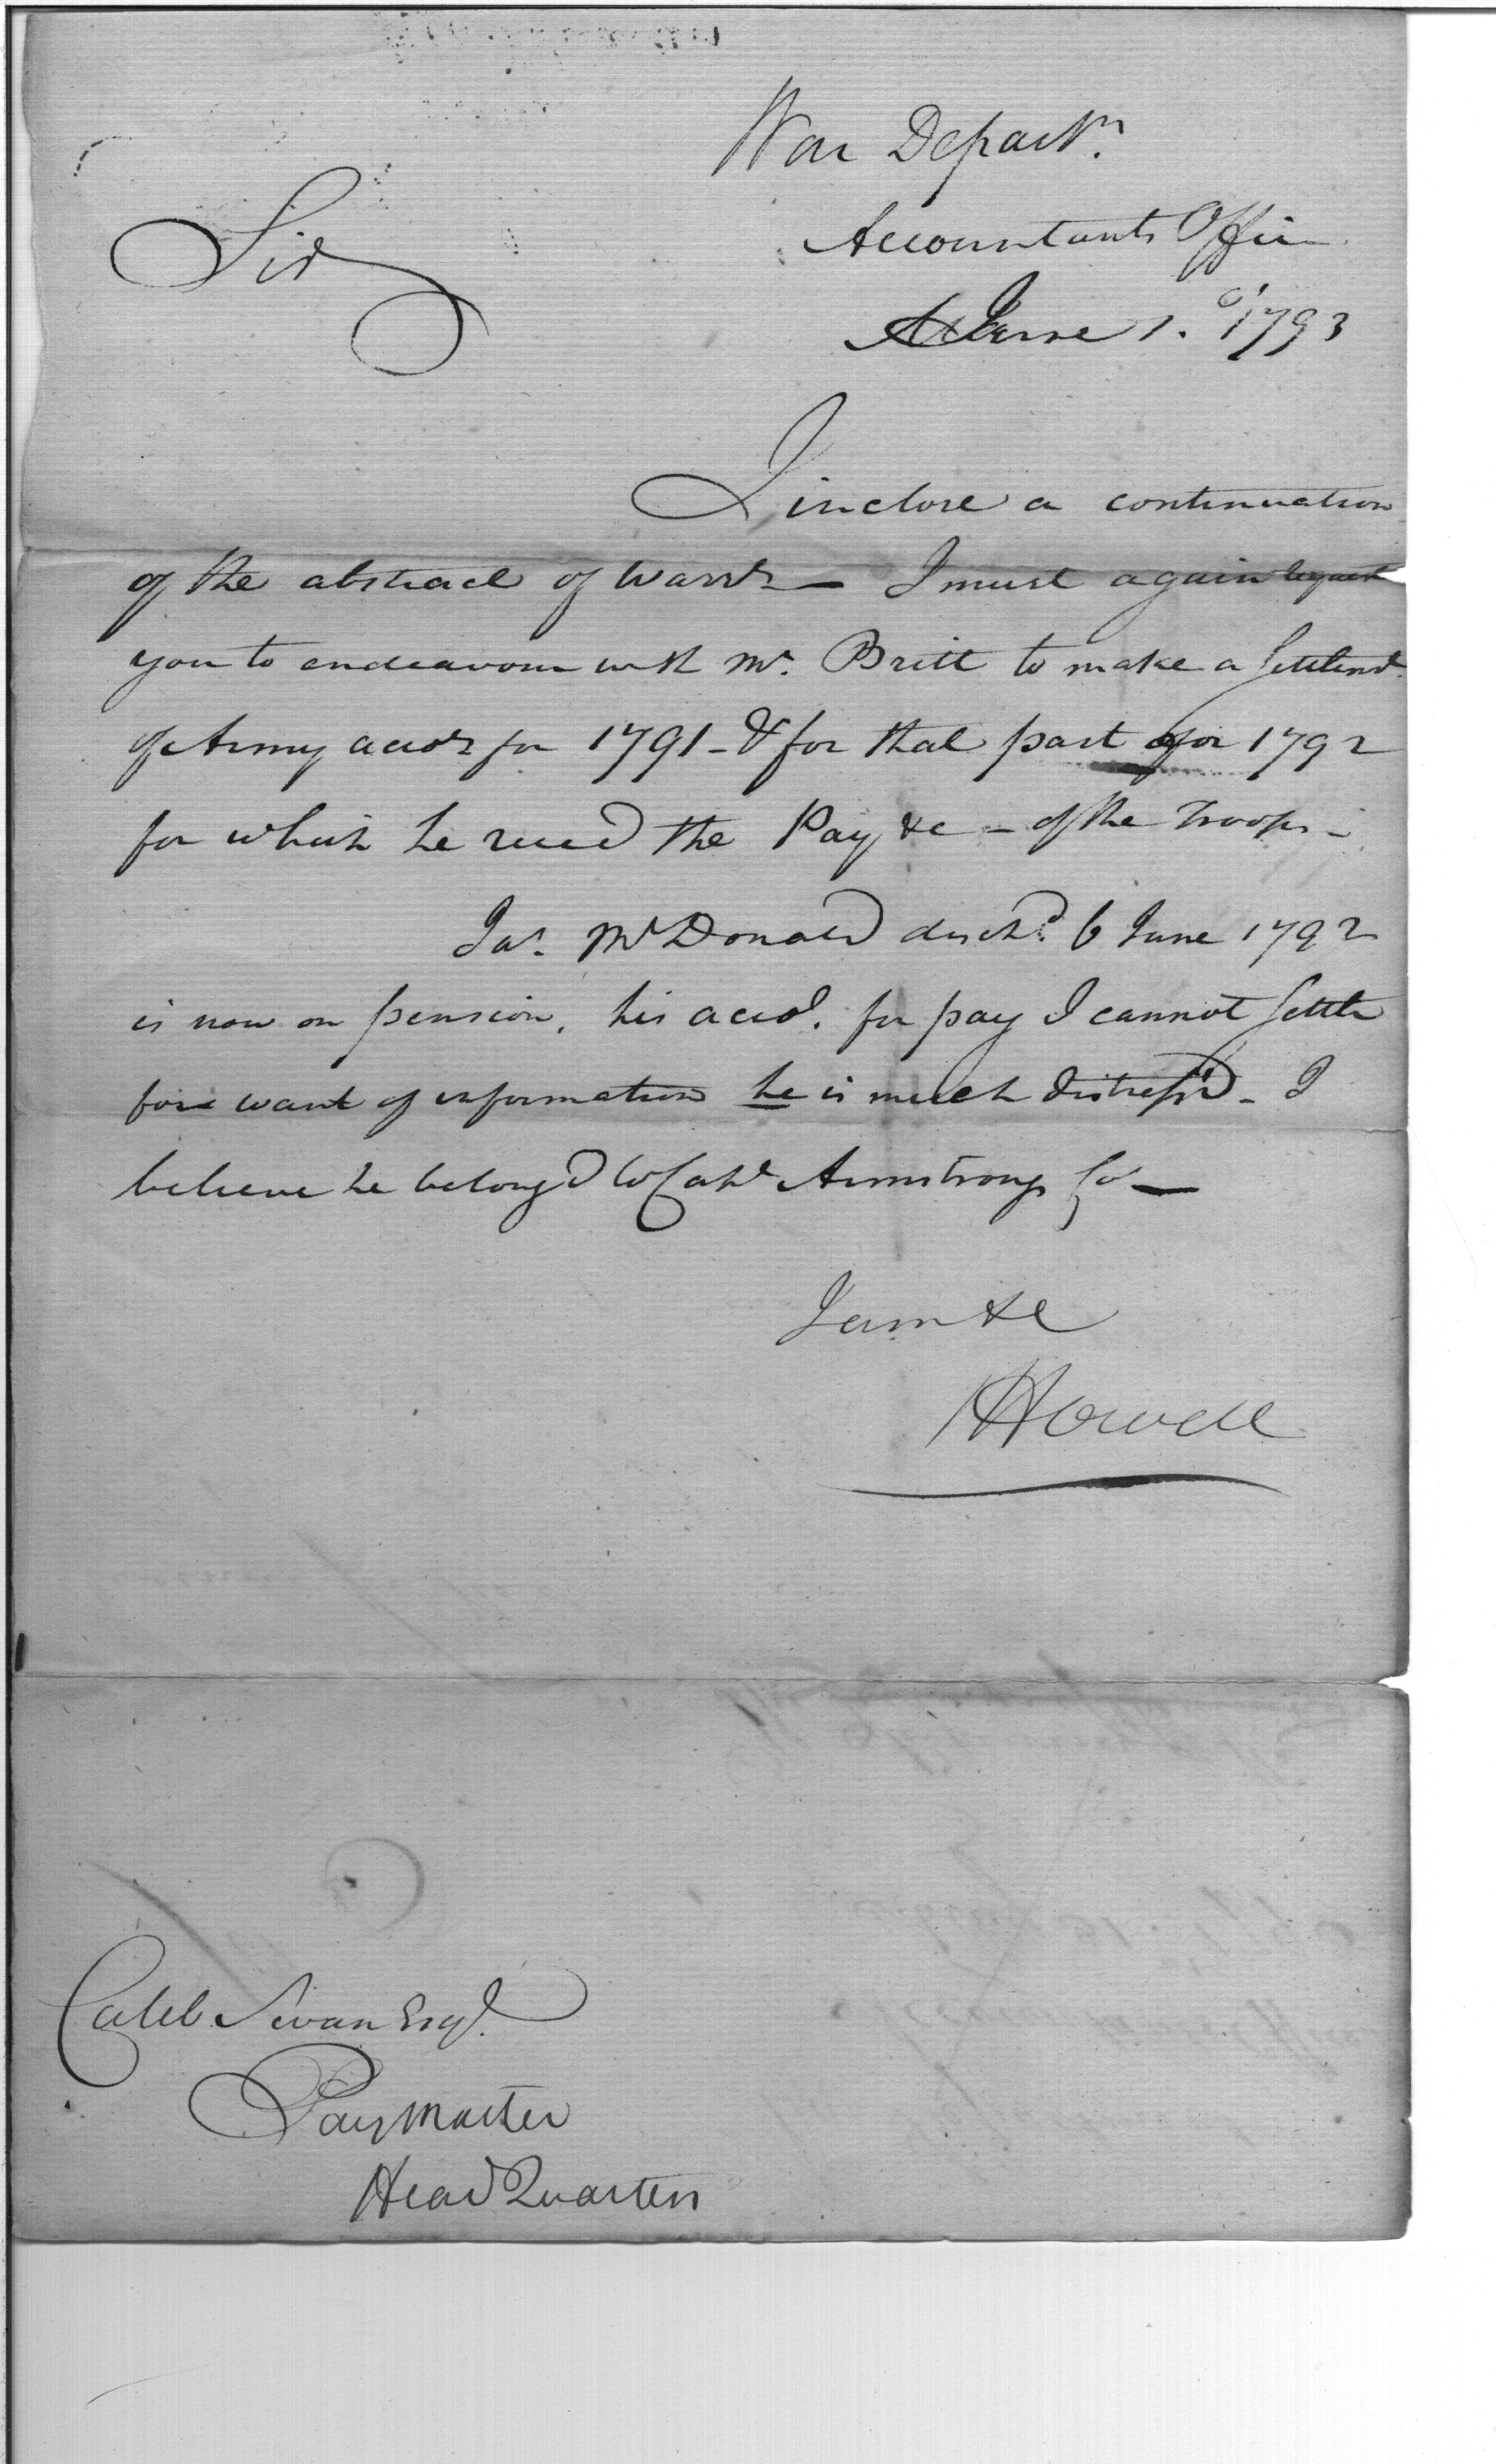 War Departmt.
Sir
Accountants Office
June 1. 1793
I inclose a continuation
of the abstract of Warrts — I must again request
you to endeavour with Mr. Britt to make a Settlemt.
of Army accots for 1791 - & for that part of for 1792
for which he recd the Pay &c - of the Troops -
Jas. McDonald disch'd. 6 June 1792
is now on pension. his accot. for pay I cannot Settle
for want of information he is much distress'd - I
believe he belong'd to Capt Armstrongs Co —
I am &c
J Howell
Caleb Swan Esqr.
PayMaster
Head Quarters